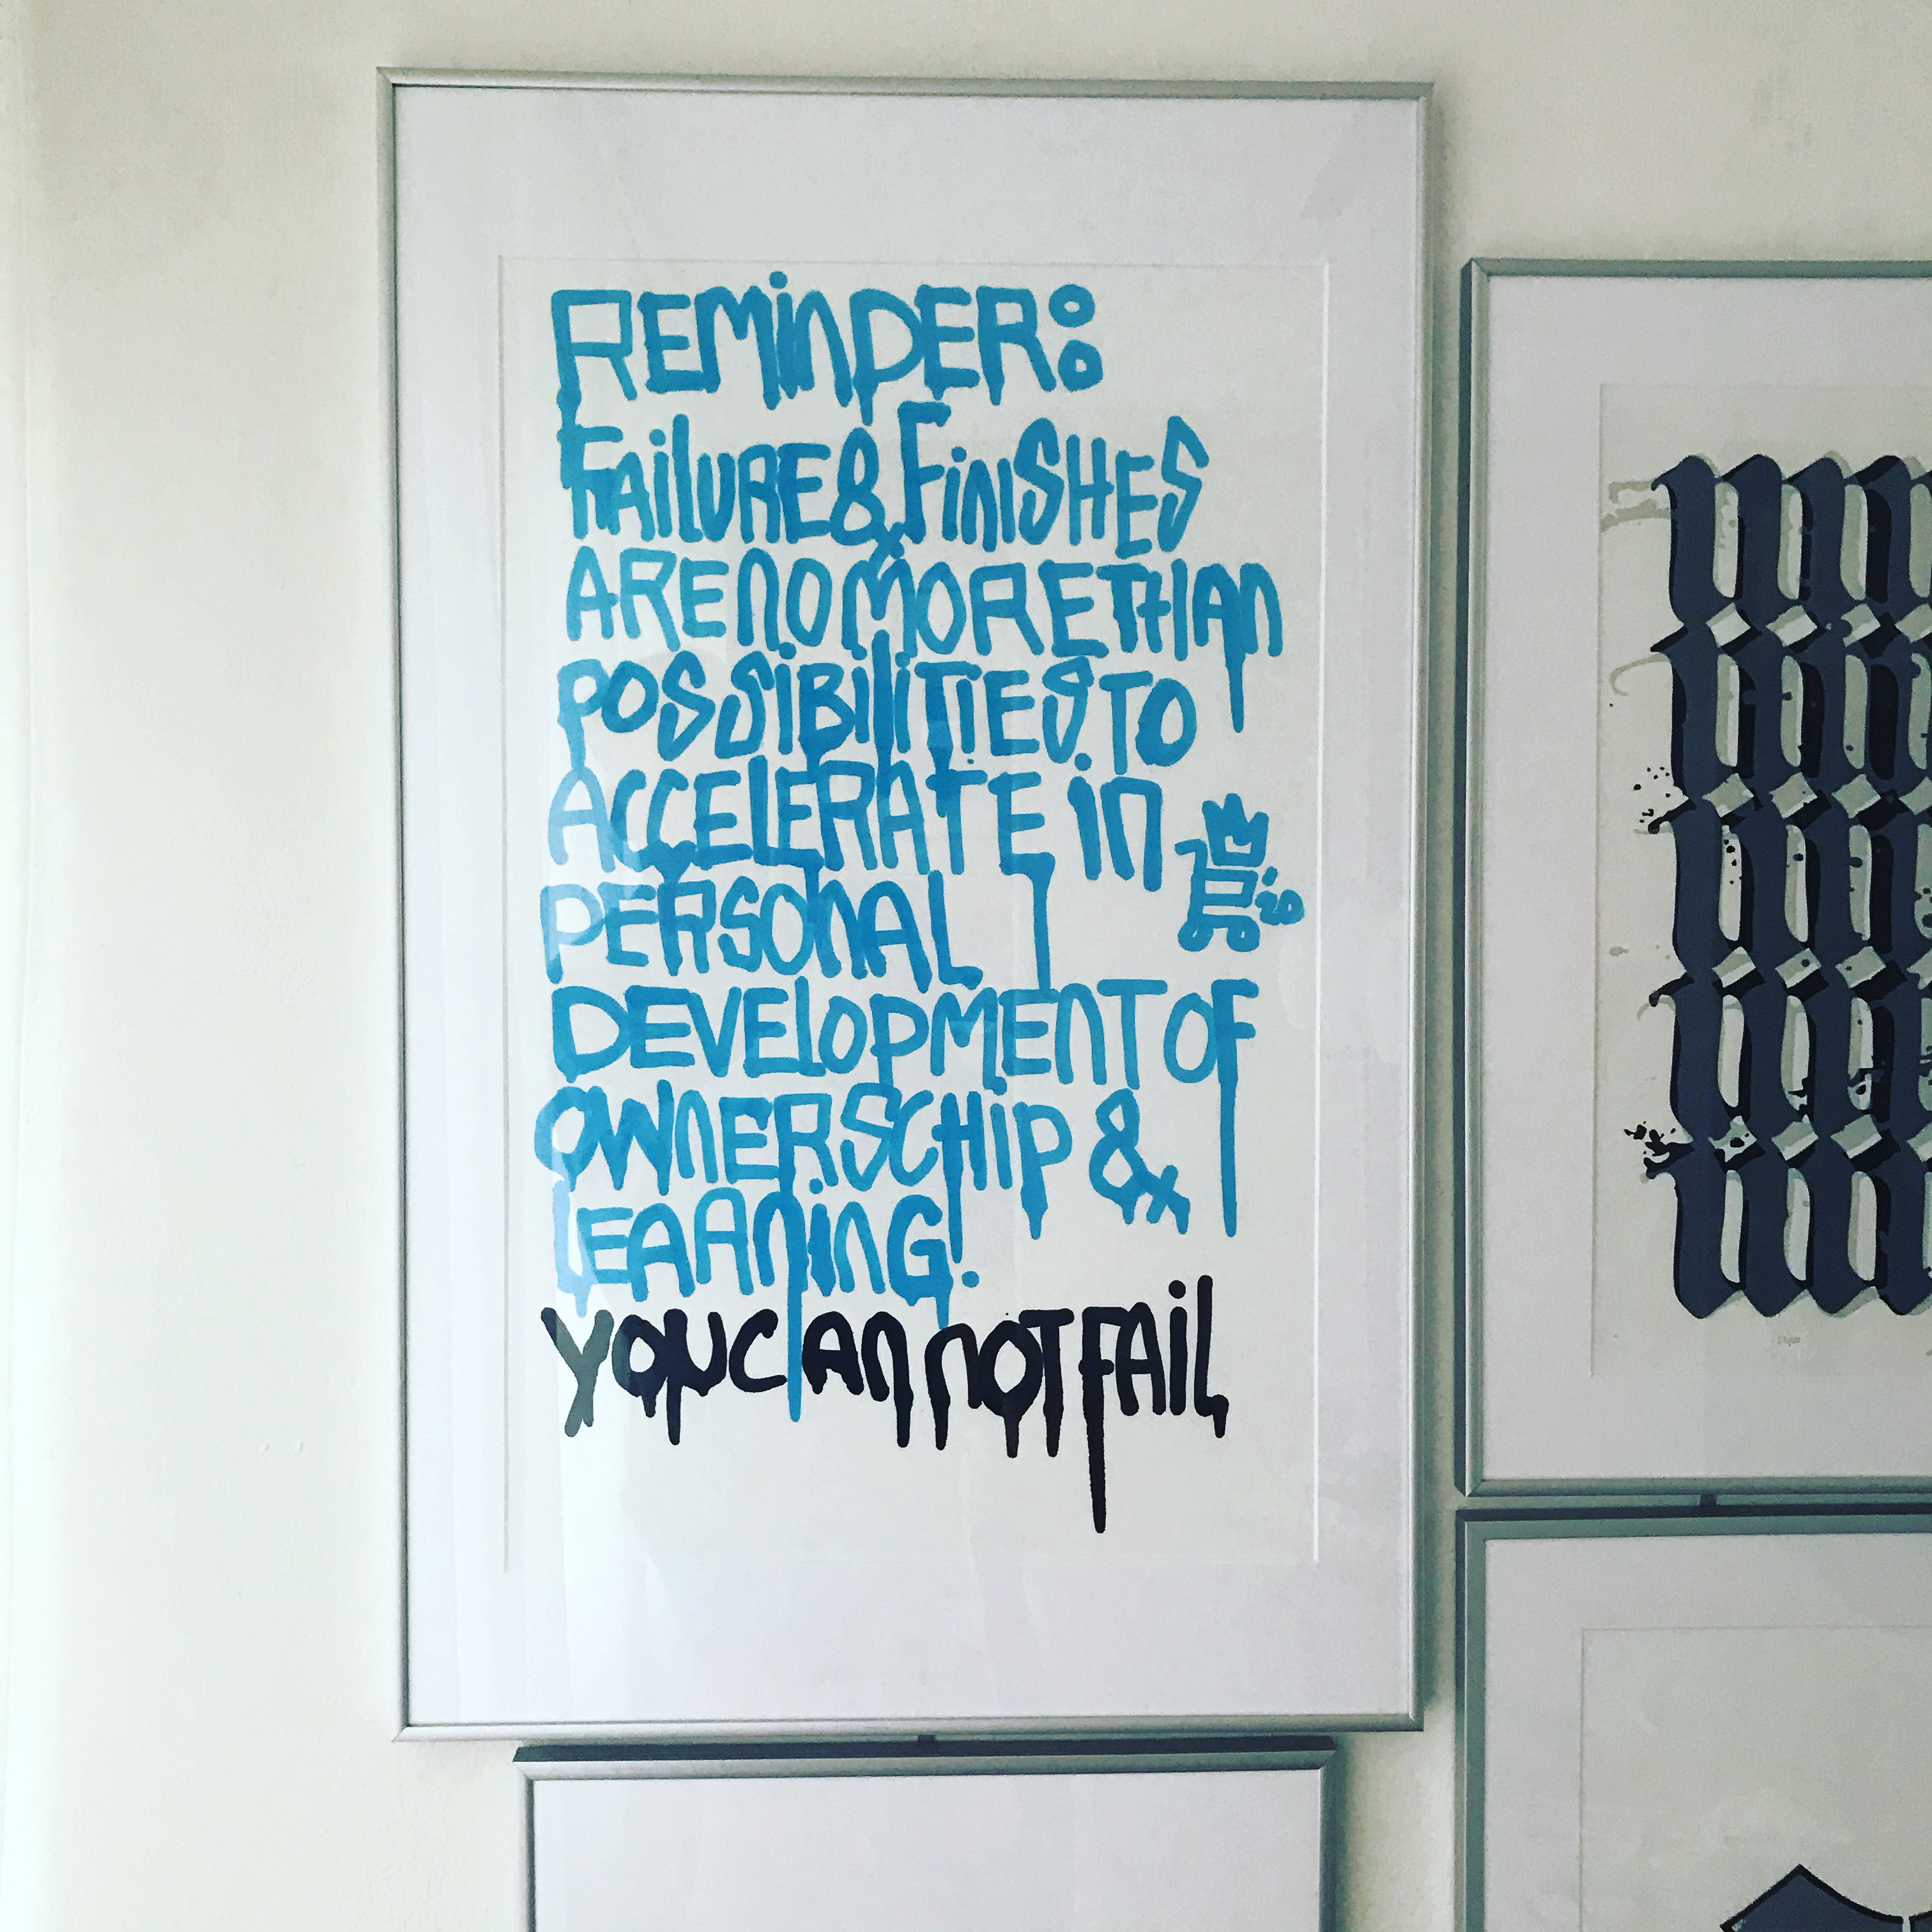 REMINDER:
FAILURE & FINISHES
ARE NO MORE THAN
POSSIBILITIES TO
ACCELERATE in
PERSONAL
DEVELOPMENT OF
OWNERSCHIP &
LEARNING!
YOU CAN NOT FAIL
'20